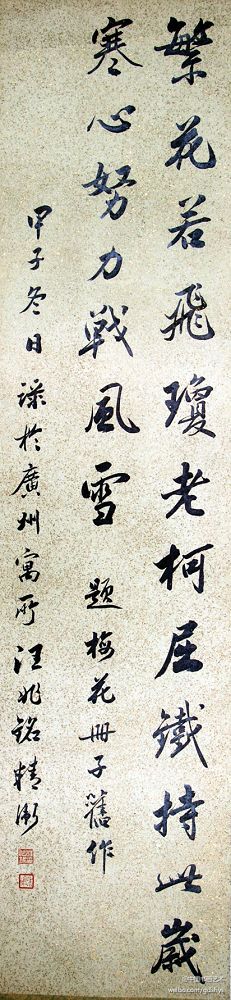 繁花若飛瓊老柯屈鐵持此歲
寒心努力戰風雪 題梅花冊子舊作
甲子冬日錄於廣州寓所汪兆銘精衛
weibo.com/gdshys